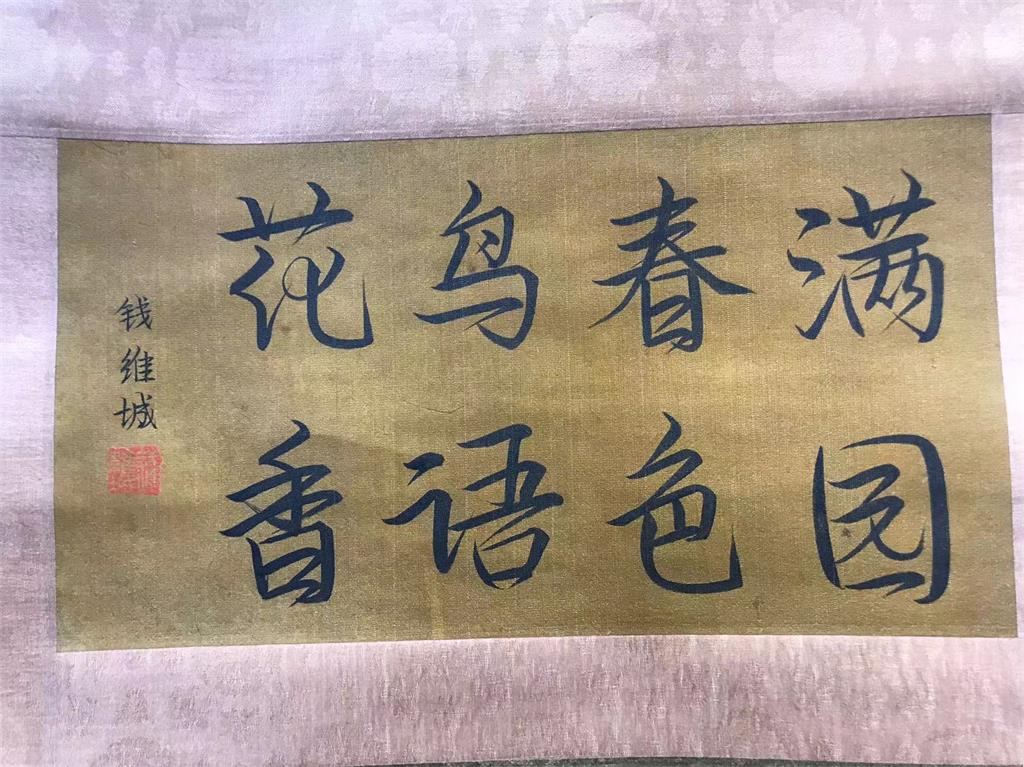 满园
春色
鸟语
花香
钱维城